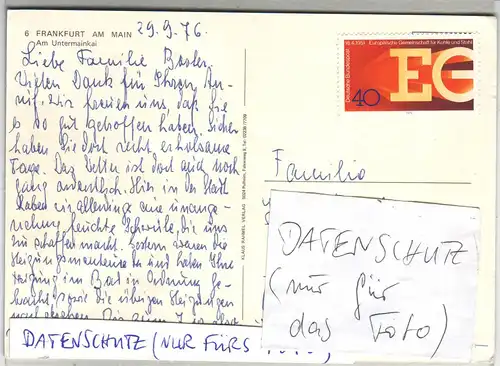 6 FRANKFURT AM MAIN
Am Untermainkai
29.9.76.
Liebe Familie
Vielen Dank für Ihren An-
ruf. Wir freuen uns, daß Sie
es so gut getroffen haben. Sicher
haben Sie dort recht erholsame
Tage. Das Wetter ist dort auch noch
ganz ordentlich. Hier in der Stadt
haben wir allerdings eine unange-
nehme feuchte Schwüle, die uns
zu schaffen macht. Gestern waren die
Heizungsmonteure da und haben Ihre
im Bad in Ordnung ge-
bracht, die übrigen Heizungen
nachgesehen.
KLAUS RAHMEL VERLAG
18.4.1951 Europäische Gemeinschaft für Kohle und Stahl
Deutsche Bundespost
40
EG
Familie
DATENSCHUTZ
(nur für
das Foto)
DATENSCHUTZ (NUR FÜRS